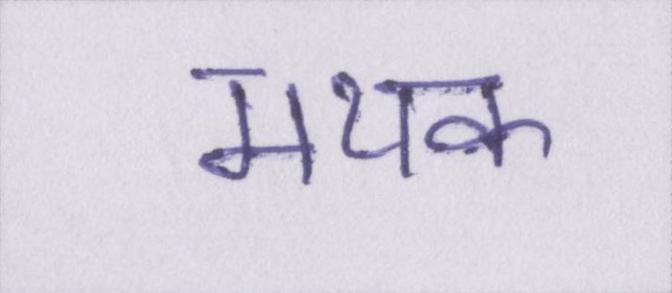 मयक